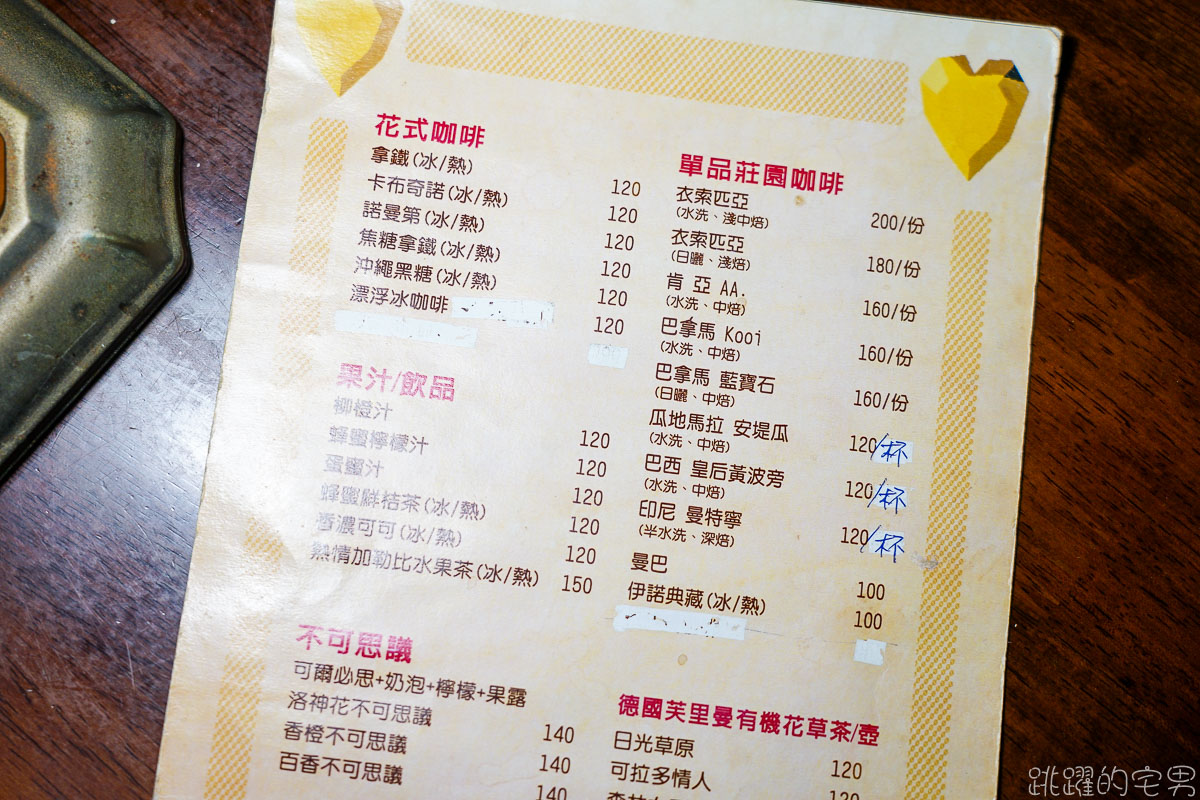 花式咖啡
拿鐵(冰/熱) 120
卡布奇諾(冰/熱) 120
諾曼第(冰/熱) 120
焦糖拿鐵(冰/熱) 120
沖繩黑糖(冰/熱) 120
漂浮冰咖啡 120
果汁/飲品
柳橙汁 120
蜂蜜檸檬汁 120
蛋蜜汁 120
蜂蜜鮮桔茶(冰/熱) 120
香濃可可(冰/熱) 120
熱情加勒比水果茶(冰/熱) 150
不可思議
可爾必思+奶泡+檸檬+果露
洛神花不可思議 140
香橙不可思議 140
百香不可思議 140
單品莊園咖啡
衣索匹亞 200/份
(水洗、淺中焙)
衣索匹亞 180/份
(日曬、淺焙)
肯亞 AA. 160/份
(水洗、中焙)
巴拿馬 Kooi 160/份
(水洗、中焙)
巴拿馬 藍寶石 160/份
(日曬、中焙)
瓜地馬拉 安堤瓜 120/杯
(水洗、中焙)
巴西 皇后黃波旁 120/杯
(水洗、中焙)
印尼 曼特寧 120/杯
(半水洗、深焙)
曼巴 100
伊諾典藏(冰/熱) 100
德國芙里曼有機花草茶/壺
日光草原 120
可拉多情人 120
跳躍的宅男